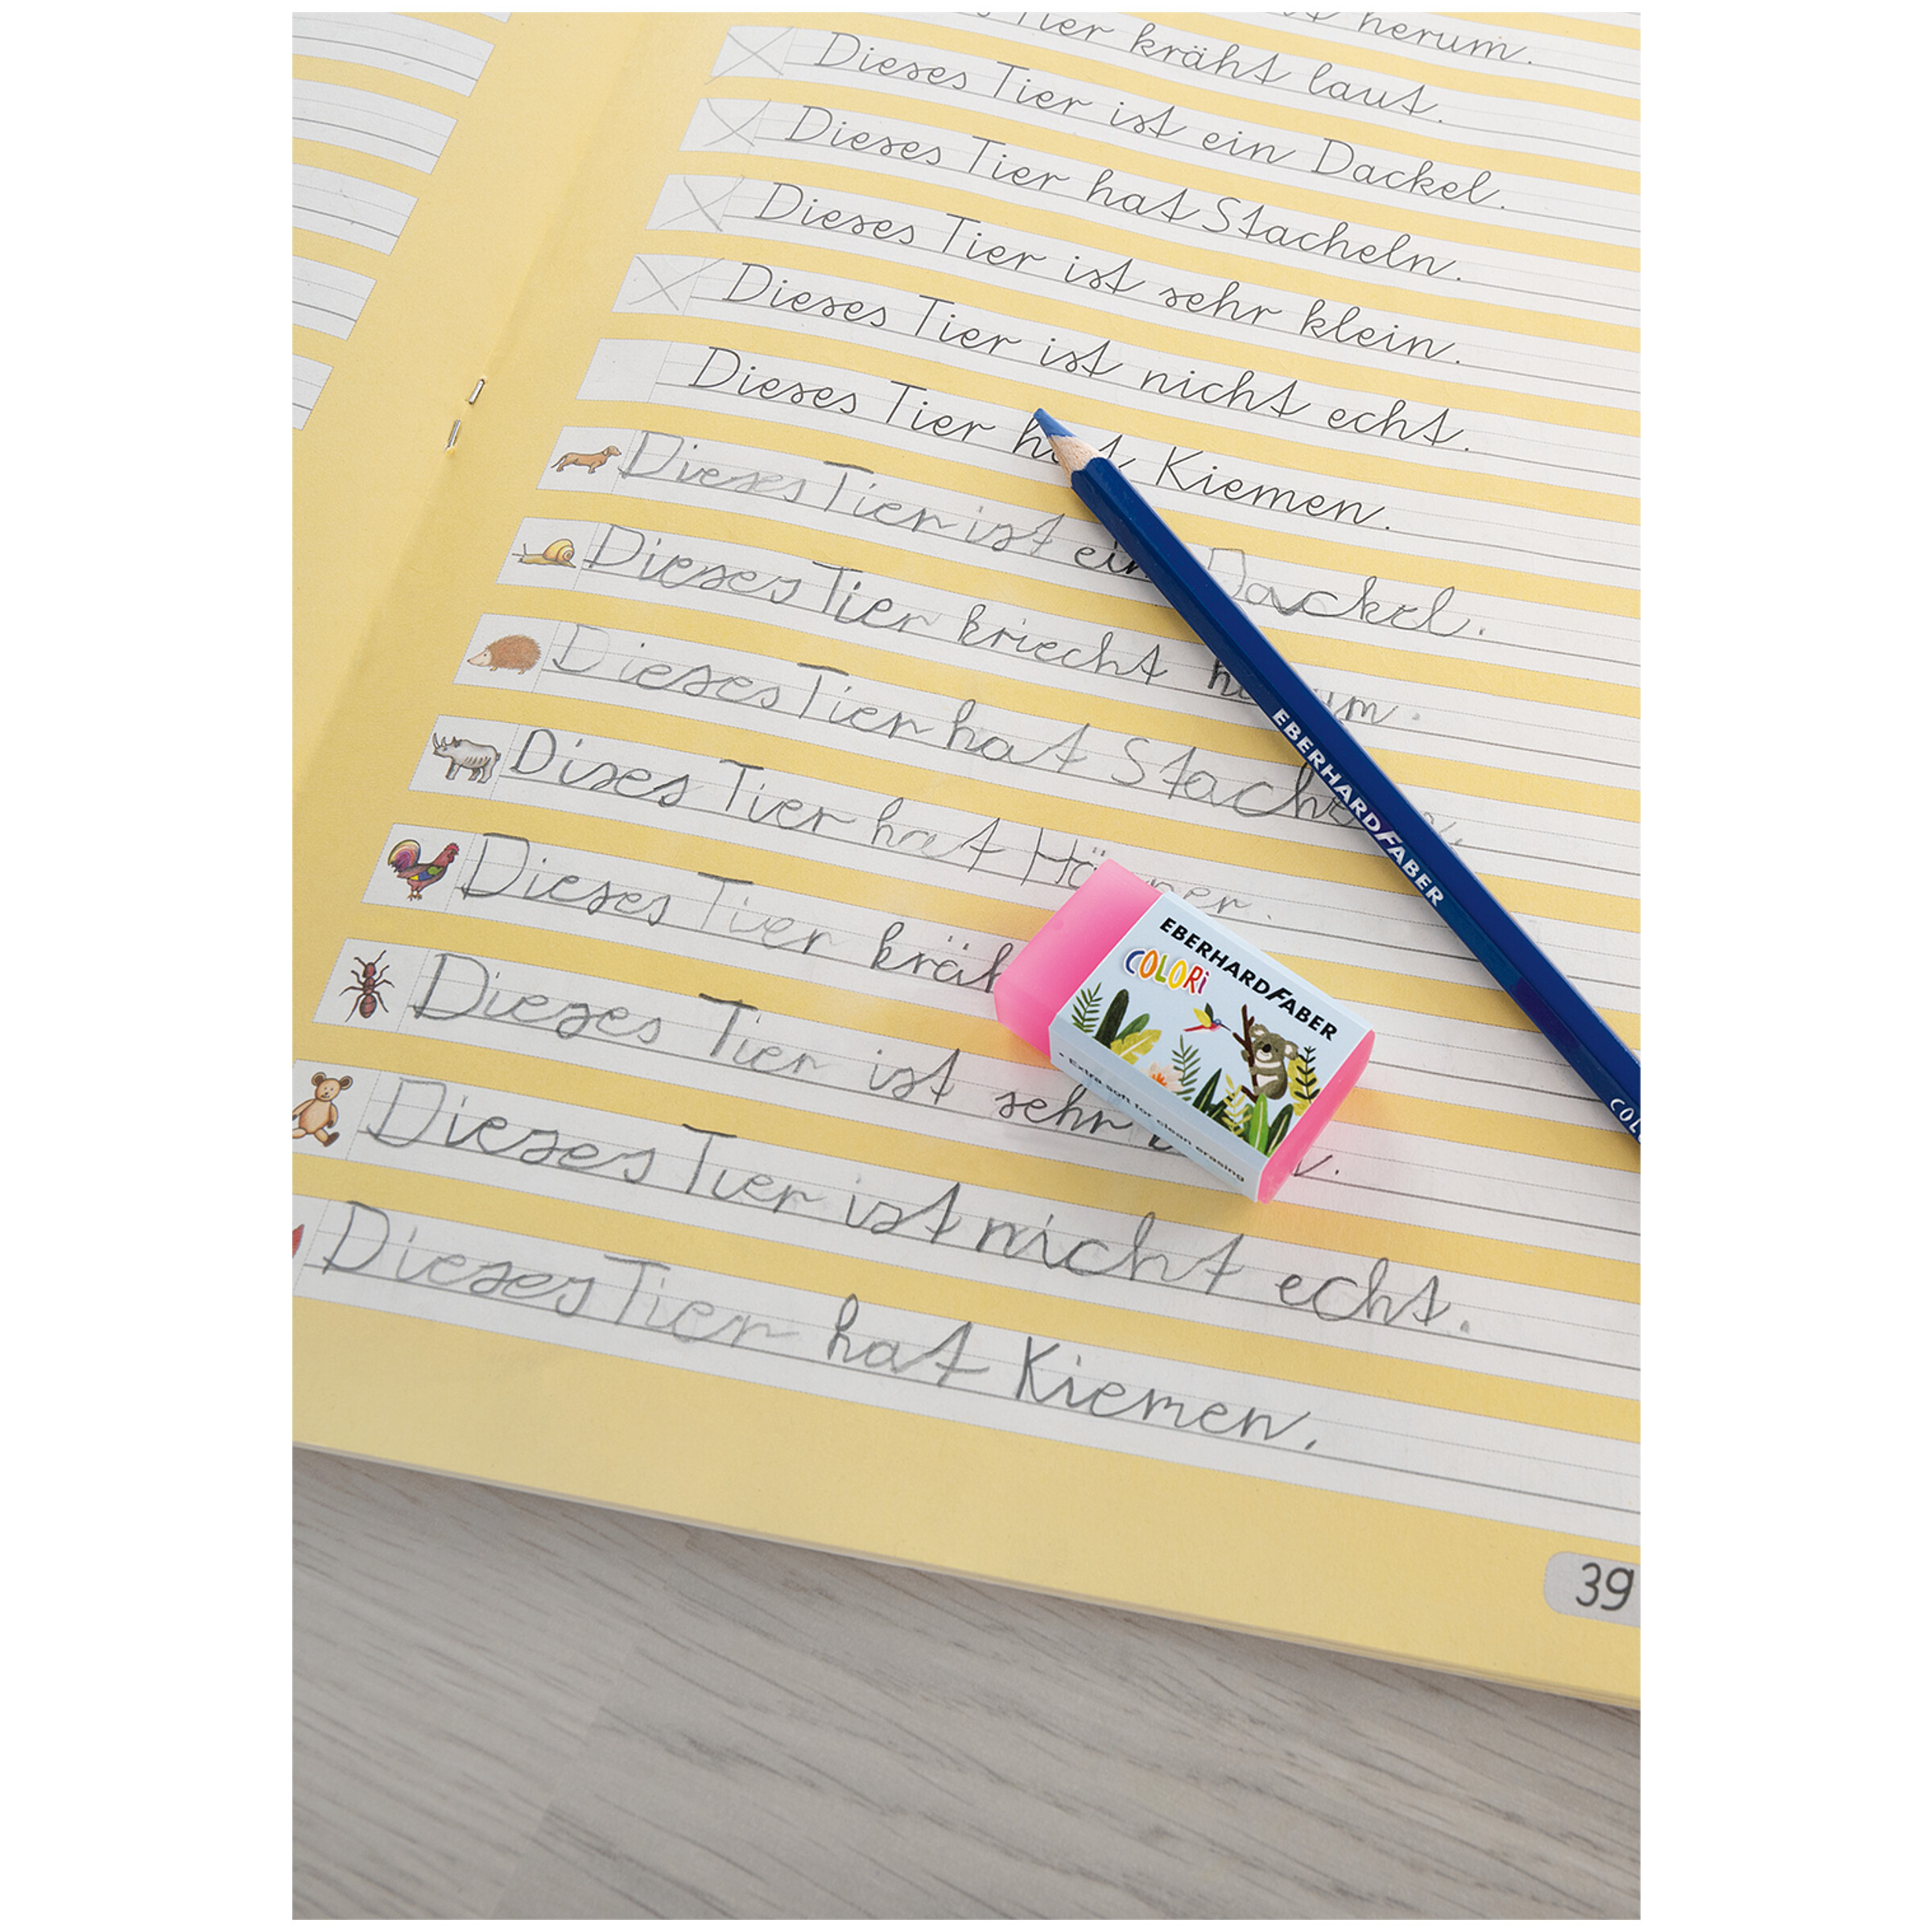 herum.
Tier kräht laut.
Dieses Tier ist ein Dackel.
Dieses Tier hat Stacheln.
Dieses Tier ist sehr klein.
Dieses Tier ist nicht echt.
Dieses Tier hat Kiemen.
Dieses Tier ist ein Dackel.
Dieses Tier kriecht
Dieses Tier hat
Dises Tier hat
Dieses Tier
Dieses Tier ist sehr
Dieses Tier ist nicht echt.
Dieses Tier hat Kiemen.
EBERHARD FABER
EBERHARD FABER
COLORi
• Extra soft for clean erasing
39